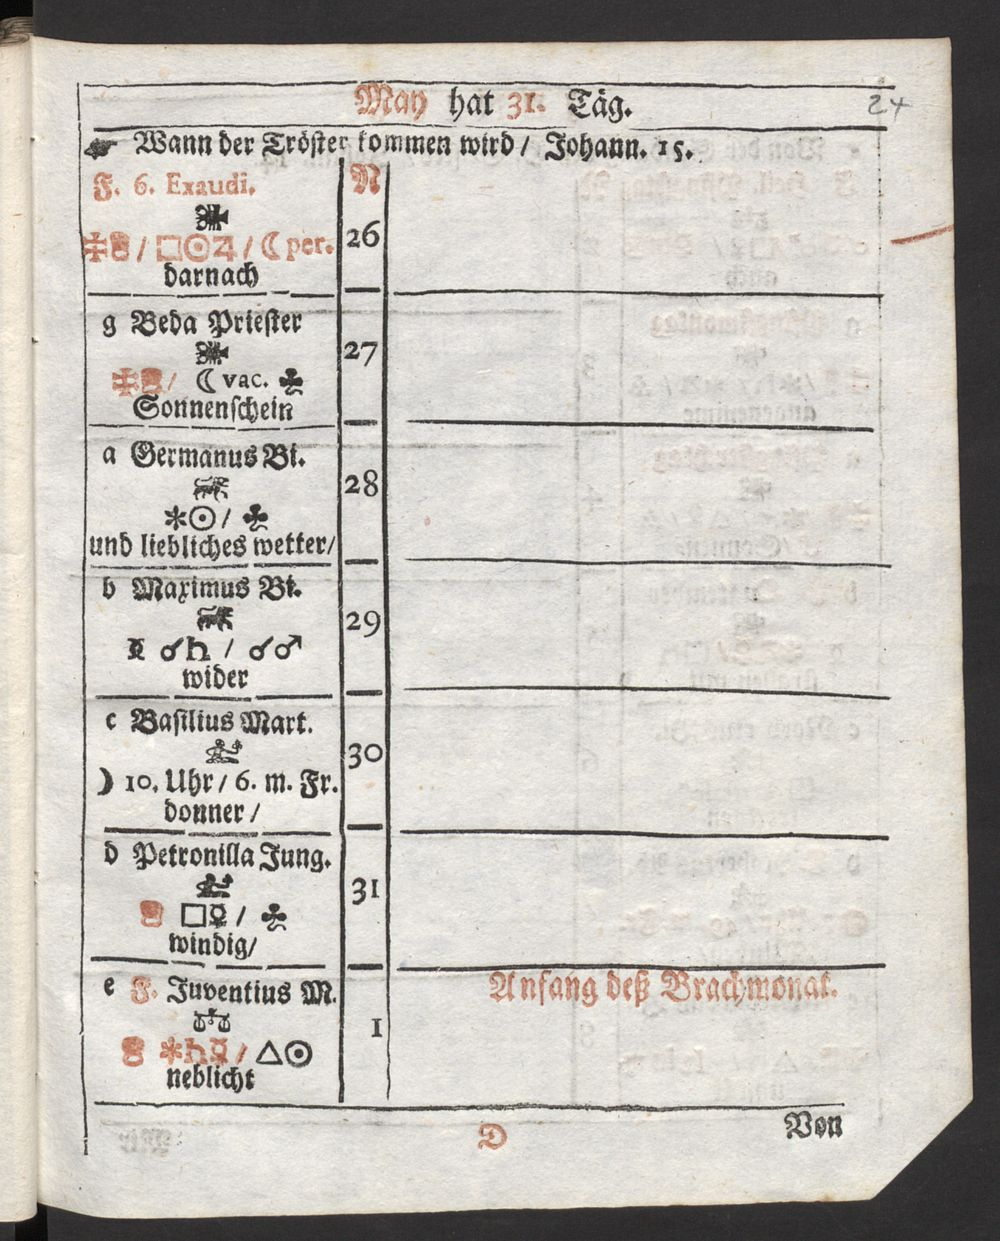 May hat 31. Täg.
24
☞ Wann der Tröster kommen wird / Johann. 15.
F. 6. Exaudi. N
26
/ □☉♃ / ☾ per.
darnach
g Beda Priester
27
/ ☾ vac. ♣
Sonnenschein
a Germanus Bi.
28
✱☉ / ♣
und liebliches wetter /
b Maximus Bi.
29
☌♄ / ☌♂
wider
c Basilius Mart.
30
☽ 10. Uhr / 6. m. Fr.
donner /
d Petronilla Jung.
31
□♀ / ♣
windig /
e F. Juventius M. Anfang deß Brachmonat.
1
✱♄☿ / △☉
neblicht
D Von